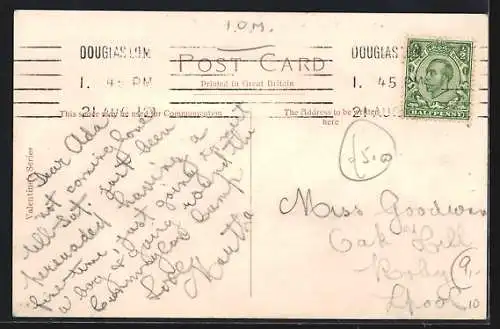 I.O.M.
DOUGLAS I.O.M.
1. 45 PM
21 AUG 12
POST CARD
Printed in Great Britain
DOUGLAS
1. 45
21 AUG
HALFPENNY
This space may be used for Communication
The Address to be written
here
Valentines Series
£5.00
Dear Ada
not coming home
till Sat. Just been
persuaded having a
fine time. Just going out
a bog & going round the
Cunningham Camp
Love Martha
Miss Goodwin
Oak Hill
Roby
L'pool
9/-
10